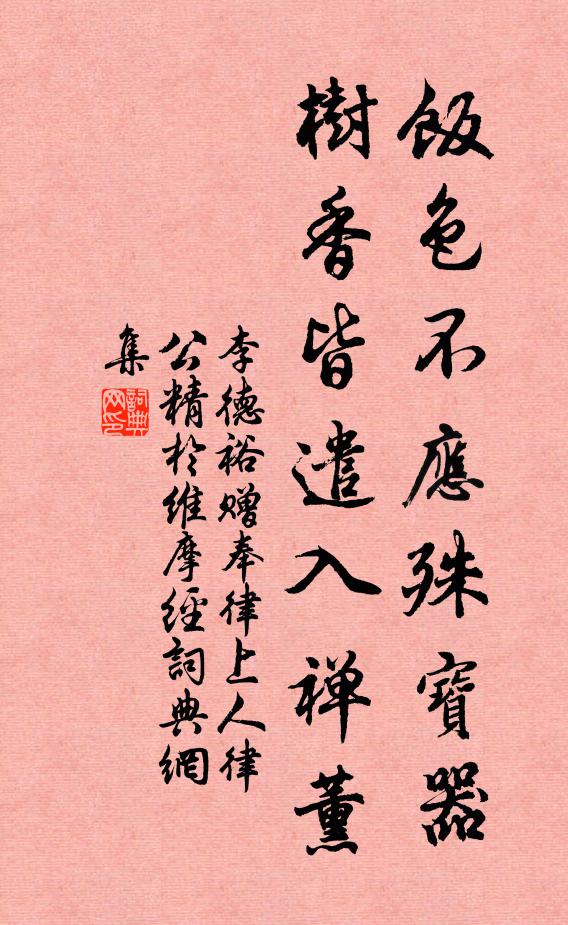 飯色不應殊寶器
樹香皆遣入禅薰
李德裕赠奉律上人律
公精於維摩經詞典網
集
詞典
网印